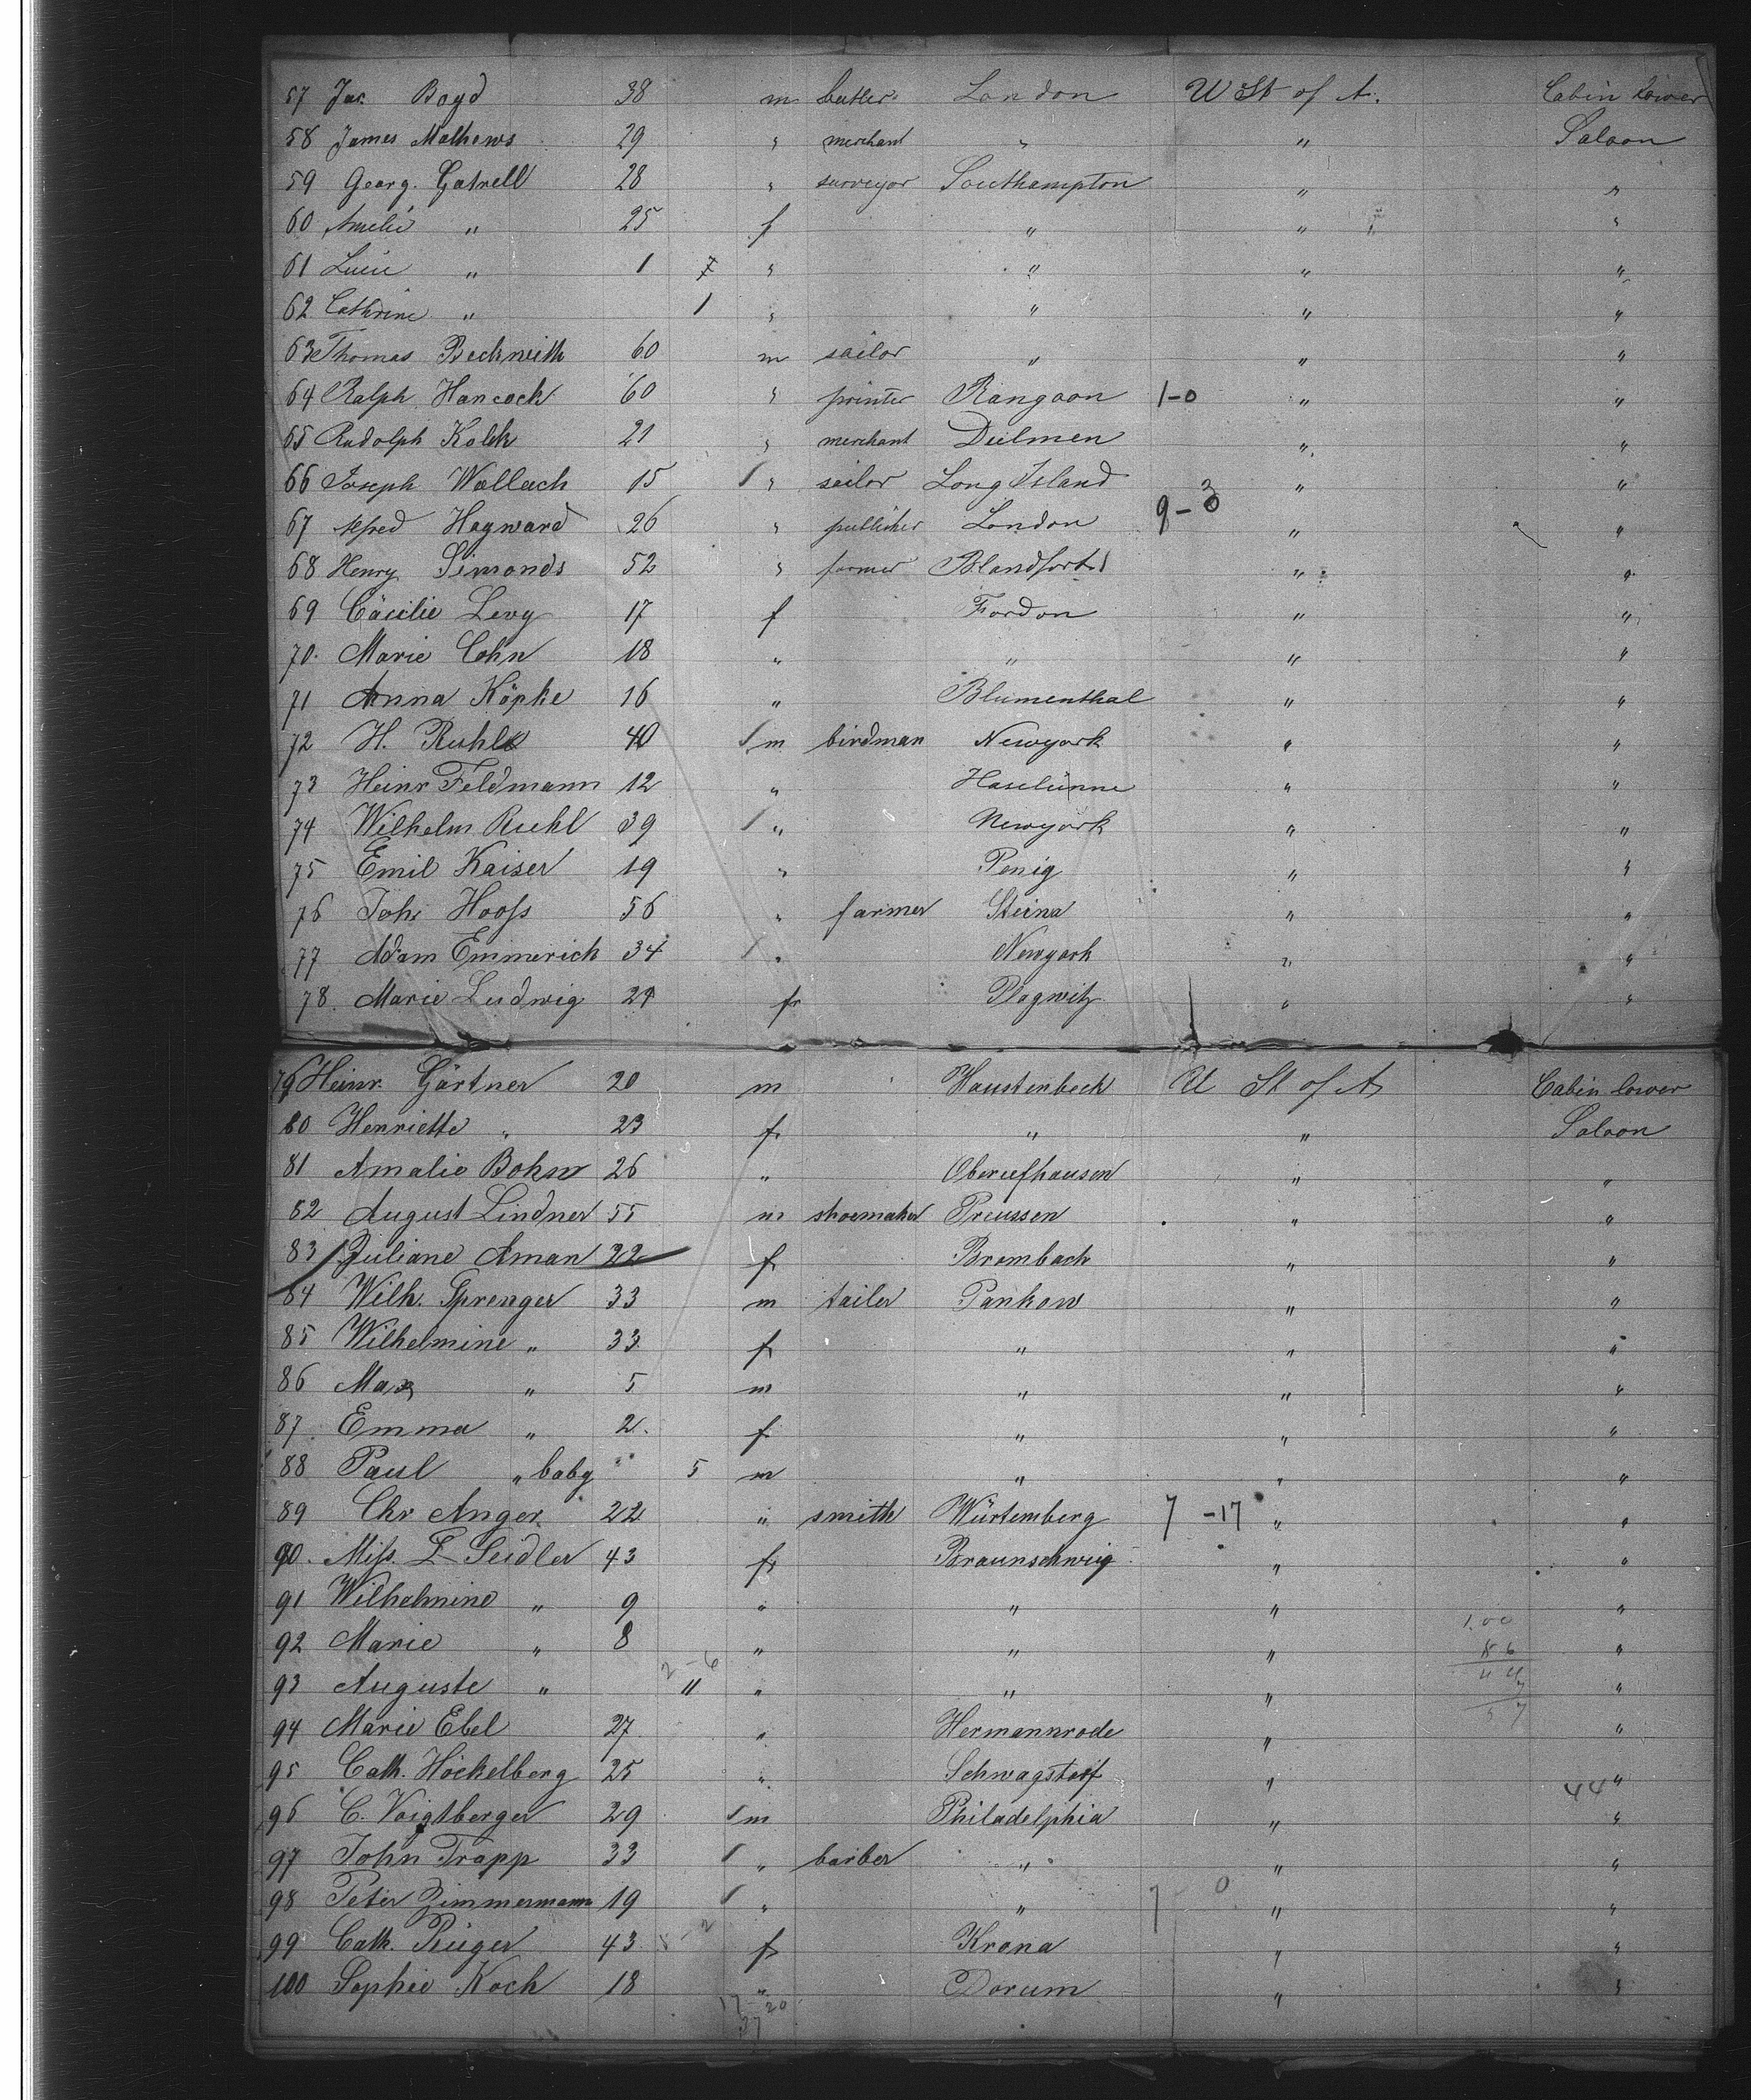 57 Jas. Boyd 38 m butler London U St of A. Cabin lower
58 James Mathews 29 " merchant " " Saloon
59 Georg. Gatrell 28 " surveyor Southampton " "
60 Amelie " 25 f " " "
61 Lucie " 1 7 " " " "
62 Cathrine " 1 " " " "
63 Thomas Beckwith 60 m sailor " " "
64 Ralph Hancock 60 " printer Rangoon 1-0 " "
65 Rudolph Kolck 21 " merchant Dülmen " "
66 Joseph Wallach 15 / " sailor Long Island " "
67 Alfred Hayward 26 " publisher London 9- " "
68 Henry Simonds 52 " farmer Blandford " "
69 Cäcilie Levy 17 f Fordon " "
70. Marie Cohn 18 " " " "
71 Anna Köpke 16 " Blumenthal " "
72 H. Ruhl 40 / m birdman Newyork " "
73 Heinr Feldmann 12 " Haselünne " "
74 Wilhelm Ruhl 39 / " Newyork " "
75 Emil Kaiser 19 " Penig " "
76 Joh Hoofs 56 " farmer Steina " "
77 Adam Emmerich 34 / " Newyork " "
78. Marie Ludwig 24 f Plagwitz " "
79 Heinr. Gärtner 20 m Haustenbeck U St of A Cabin lower
80 Henriette " 23 f " " Saloon
81 Amalie Bohm 26 " " "
82 August Lindner 55 m shoemaker Preussen " "
83 Juliane Aman 22 f Brombach " "
84 Wilh. Sprenger 33 m tailer Pankow " "
85 Wilhelmine " 33. f " " "
86 Max " 5 m " " "
87. Emma " 2. f " " "
88 Paul " baby " 5 m " " "
89 Chr Anger 22 " smith Würtemberg 7 -17 " "
90. Miss. L Seidler 43 f Braunschweig " "
91 Wilhelmine " 9 " " " "
92 Marie " 8 " " " " 1.00
86
93 Auguste " 2-6 11 " " " "
57
94 Marie Ebel 27 " Hermannrode " "
95 Cath. Höckelberg 25 " Schwagstorf " "
44
96 C. Voigtberger 29 / m Philadelphia " "
97 John Trapp 33 / " barber " " "
98 Peter Zimmermann 19 / " " 7 0 " "
99 Cath. 43 -2 f Krona " "
100 Sophie Koch 18 " Dorum " "
17-20
37